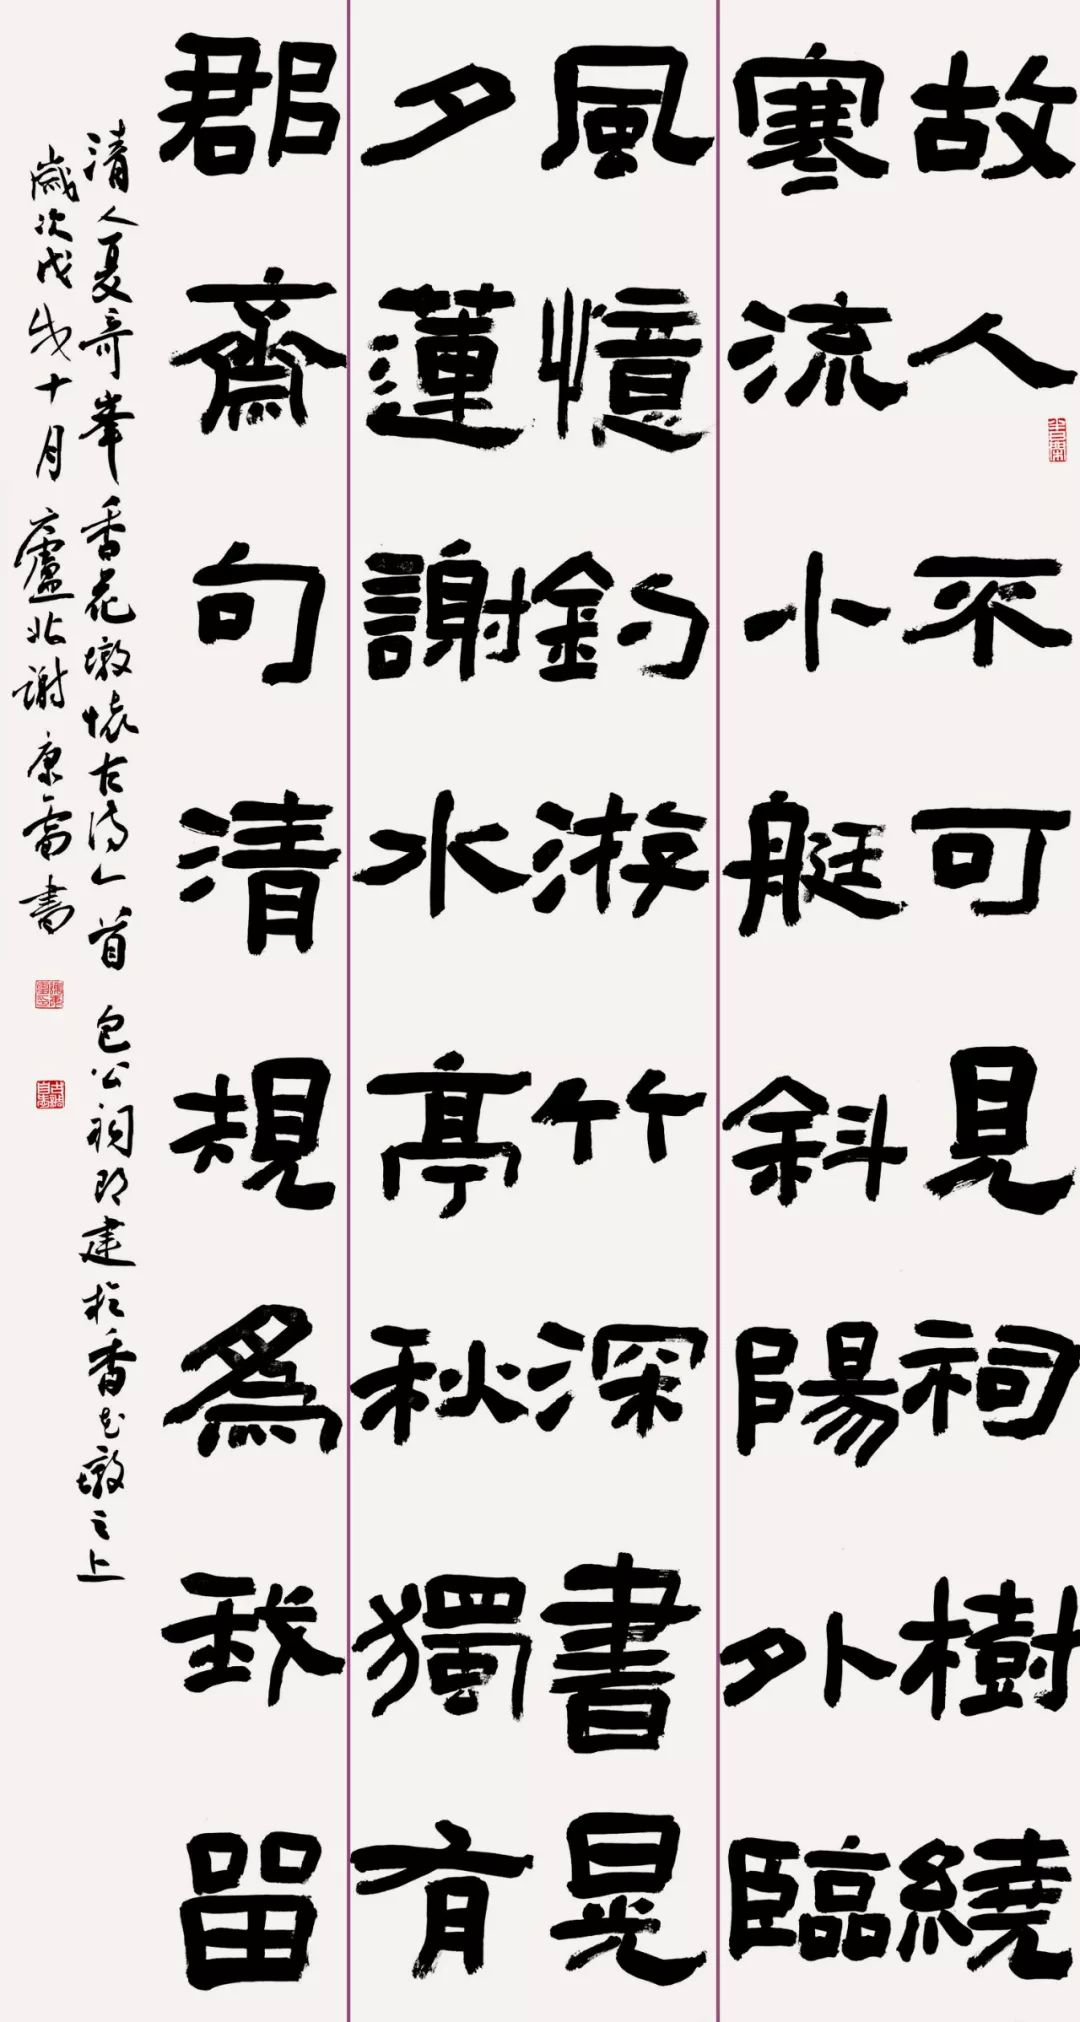 故人不可見祠樹繞
寒流小艇斜陽外臨
風憶釣游竹深書晃
夕蓮謝水亭秋獨有
郡齋句清規爲我留
清人夏奇峯香花墩懷古詩一首 包公祠即建於香花墩之上
歲次戊戌十月廬北謝康雷書